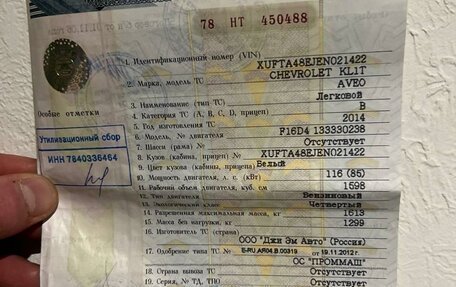 78 НТ 450488
1. Идентификационный номер (VIN) XUFTA48EJEN021422
2. Марка, модель ТС CHEVROLET KL1T
AVEO
3. Наименование (тип ТС) Легковой
4. Категория ТС (А, В, С, D, прицеп) В
5. Год изготовления ТС 2014
6. Модель, № двигателя F16D4 133330238
7. Шасси (рама) № Отсутствует
8. Кузов (кабина, прицеп) № XUFTA48EJEN021422
9. Цвет кузова (кабины, прицепа) Белый
10. Мощность двигателя, л. с. (кВт) 116 (85)
11. Рабочий объем двигателя, куб. см 1598
12. Тип двигателя Бензиновый
13. Экологический класс Четвертый
14. Разрешенная максимальная масса, кг 1613
15. Масса без нагрузки, кг 1299
16. Изготовитель ТС (страна)
ООО "Джи Эм Авто" (Россия)
17. Одобрение типа ТС № E-RU.АЯ04.В.00319 от 19.11.2012 г.
ОС "ПРОММАШ"
18. Страна вывоза ТС Отсутствует
19. Серия, № ТД, ТПО Отсутствует
Особые отметки
Утилизационный сбор
ИНН 7840336464